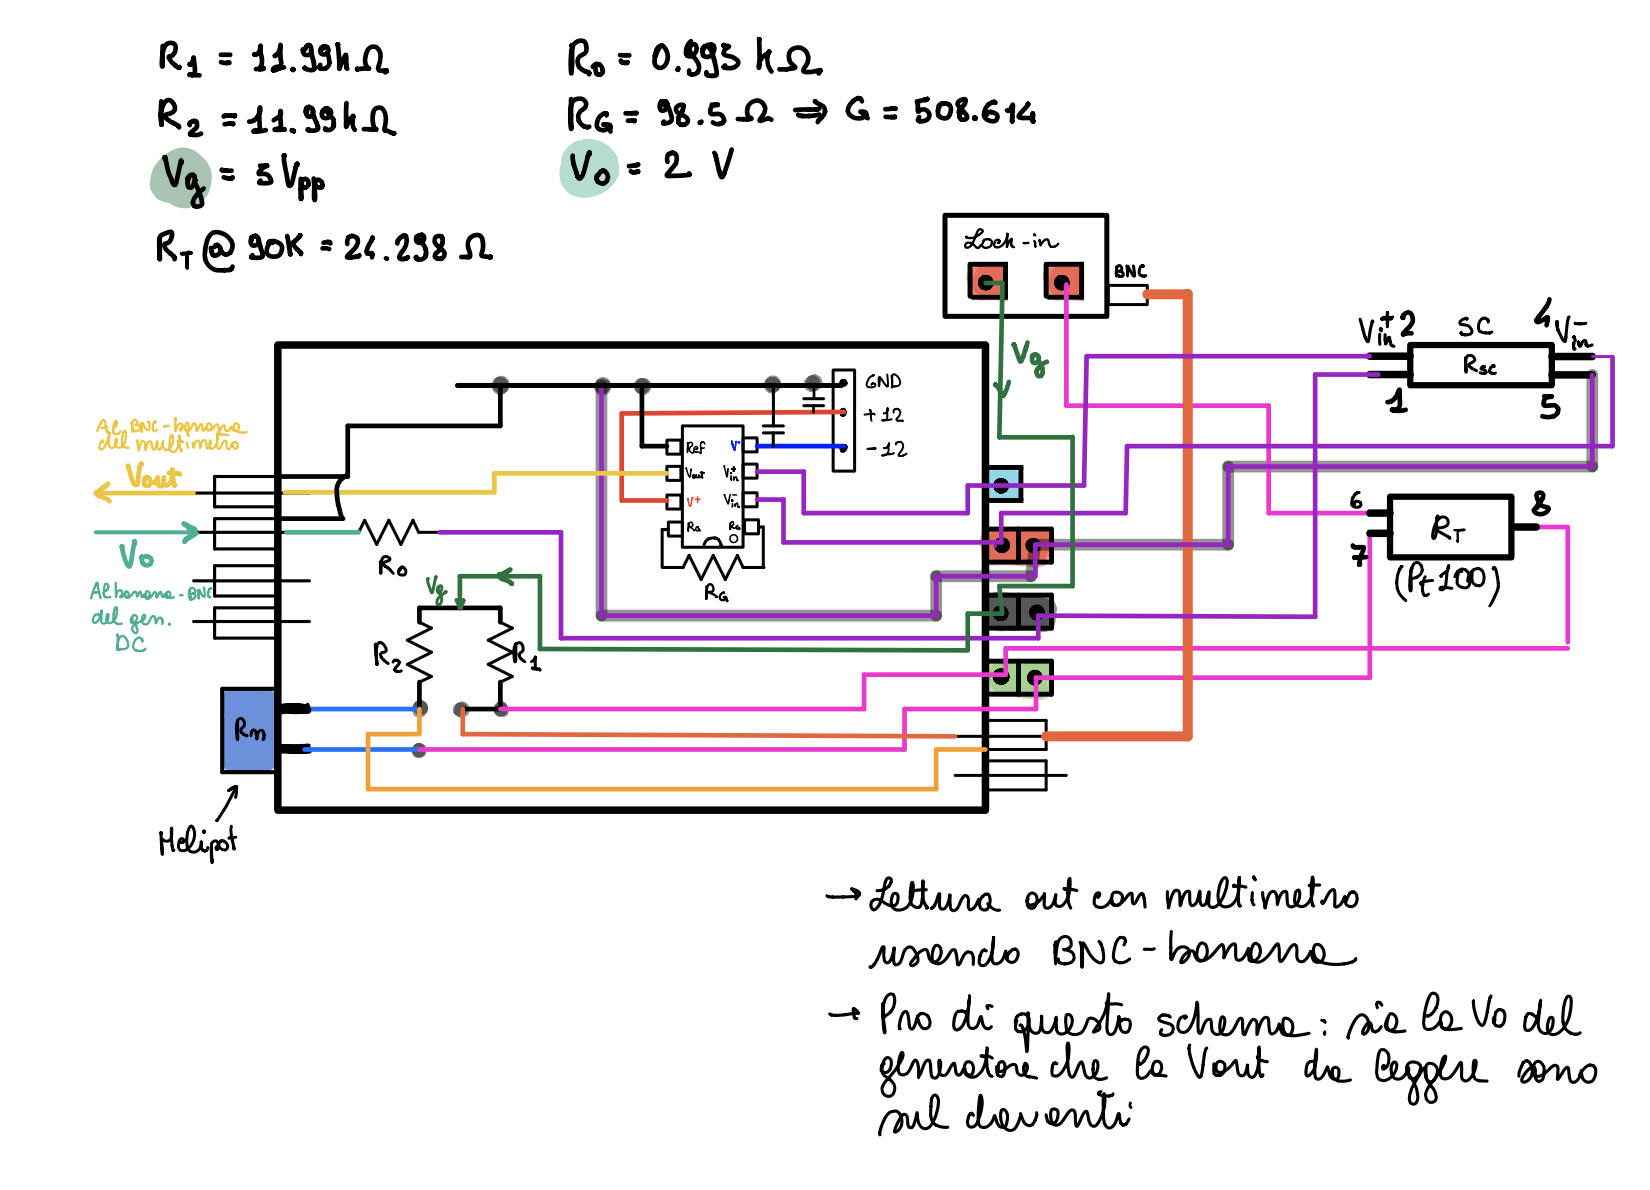 R1 = 11.99kΩ
R2 = 11.99kΩ
Vg = 5Vpp
RT @ 90K = 24.298 Ω
R0 = 0.993 kΩ
RG = 98.5 Ω ⇒ G = 508.614
V0 = 2 V
Lock-in
BNC
Vg
Vin+ 2 SC 4 Vin-
Rsc
1 5
6 8
RT
7
(Pt100)
GND
+12
-12
Ref V-
Vout Vin+
V+ Vin-
RG RG
RG
Al BNC-banana
del multimetro
Vout
V0
R0
Al banana-BNC
del gen.
DC
Vg
R2 R1
Rm
Helipot
→ Lettura out con multimetro
usando BNC-banana
→ Pro di questo schema: sia la V0 del
generatore che la Vout da leggere sono
sul davanti